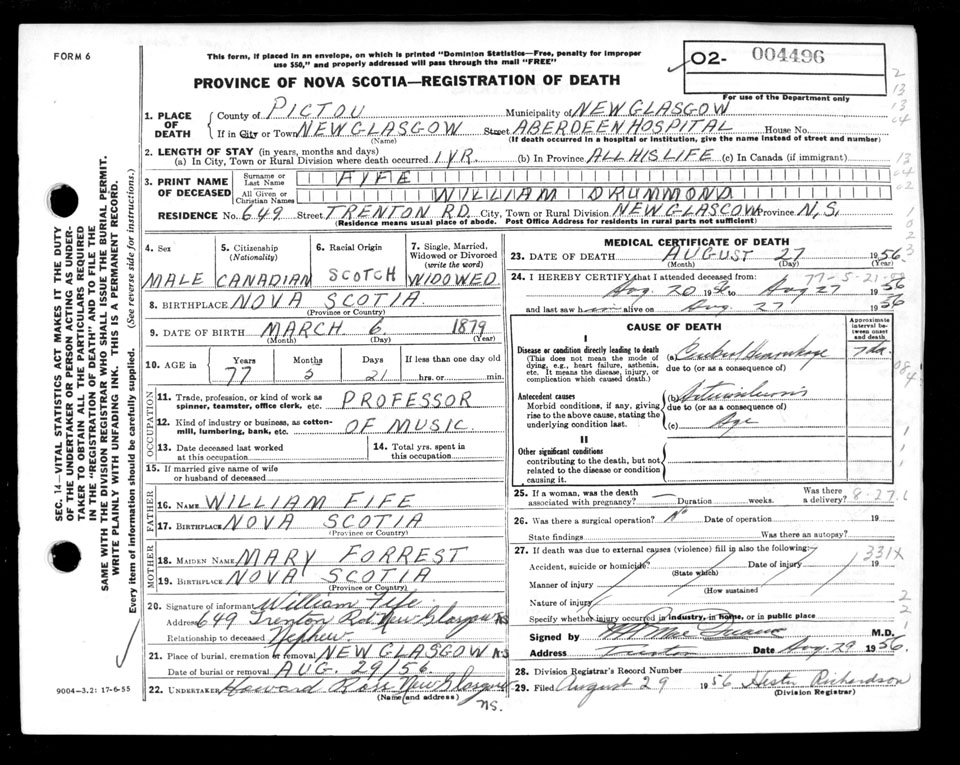 FORM 6
This form, if placed in an envelope, on which is printed "Dominion Statistics—Free, penalty for improper
use $50," and properly addressed will pass through the mail "FREE"
02- 004496
For use of the Department only
PROVINCE OF NOVA SCOTIA—REGISTRATION OF DEATH
1. PLACE OF DEATH
County of PICTOU Municipality of NEW GLASGOW
If in City or Town NEW GLASGOW Street ABERDEEN HOSPITAL House No.
(Name) (If death occurred in a hospital or institution, give the name instead of street and number)
2. LENGTH OF STAY (in years, months and days)
(a) In City, Town or Rural Division where death occurred 1 YR. (b) In Province ALL HIS LIFE (c) In Canada (if immigrant)
3. PRINT NAME OF DECEASED
Surname or Last Name FYFE
All Given or Christian Names WILLIAM DRUMMOND
RESIDENCE No. 649 Street TRENTON RD. City, Town or Rural Division NEW GLASGOW Province N.S.
(Residence means usual place of abode. Post Office Address for residents in rural parts not sufficient)
4. Sex MALE
5. Citizenship (Nationality) CANADIAN
6. Racial Origin SCOTCH
7. Single, Married, Widowed or Divorced (write the word) WIDOWED
8. BIRTHPLACE NOVA SCOTIA
(Province or Country)
9. DATE OF BIRTH MARCH 6 1879
(Month) (Day) (Year)
10. AGE in Years Months Days If less than one day old
77 5 21 hrs. or min.
OCCUPATION
11. Trade, profession, or kind of work as
spinner, teamster, office clerk, etc. PROFESSOR
12. Kind of industry or business, as cotton-
mill, lumbering, bank, etc. OF MUSIC.
13. Date deceased last worked at this occupation
14. Total yrs. spent in this occupation
15. If married give name of wife
or husband of deceased
FATHER
16. NAME WILLIAM FIFE
17. BIRTHPLACE NOVA SCOTIA
(Province or Country)
MOTHER
18. MAIDEN NAME MARY FORREST
19. BIRTHPLACE NOVA SCOTIA
(Province or Country)
20. Signature of informant William Fife
Address 649 Trenton Rd. New Glasgow NS
Relationship to deceased Nephew
21. Place of burial, cremation or removal NEW GLASGOW N.S
Date of burial or removal AUG. 29/56
22. UNDERTAKER Howard Rose New Glasgow
(Name and address) NS.
MEDICAL CERTIFICATE OF DEATH
23. DATE OF DEATH AUGUST 27 1956
(Month) (Day)
77-5-21-58
24. I HEREBY CERTIFY that I attended deceased from:
Aug. 20 1956 to Aug 27 1956
and last saw him alive on Aug 27 1956
CAUSE OF DEATH
Approximate interval between onset and death
I
Disease or condition directly leading to death
(This does not mean the mode of
dying, e.g., heart failure, asthenia,
etc. It means the disease, injury, or
complication which caused death.)
(a) Cerebral Hemorrhage 7 da.
due to (or as a consequence of)
Antecedent causes
Morbid conditions, if any, giving
rise to the above cause, stating the
underlying condition last.
(b)
due to (or as a consequence of)
(c) Age
II
Other significant conditions
contributing to the death, but not
related to the disease or condition
causing it.
25. If a woman, was the death associated with pregnancy? — Duration weeks. Was there a delivery?
8-27.6
26. Was there a surgical operation? No Date of operation 19
State findings Was there an autopsy?
27. If death was due to external causes (violence) fill in also the following:
331X
Accident, suicide or homicide? Date of injury 19
(State which)
Manner of injury
(How sustained)
Nature of injury
Specify whether injury occurred in industry, in home, or in public place
Signed by M.D.
Address Trenton Date Aug. 29 1956.
28. Division Registrar's Record Number
29. Filed August 29 1956 Hester Richardson
(Division Registrar)
SEC. 14—VITAL STATISTICS ACT MAKES IT THE DUTY
OF THE UNDERTAKER OR PERSON ACTING AS UNDER-
TAKER TO OBTAIN ALL THE PARTICULARS REQUIRED
IN THE "REGISTRATION OF DEATH" AND TO FILE THE
SAME WITH THE DIVISION REGISTRAR WHO SHALL ISSUE THE BURIAL PERMIT.
WRITE PLAINLY WITH UNFADING INK. THIS IS A PERMANENT RECORD.
Every item of information should be carefully supplied. (See reverse side for instructions.)
9004-3.2: 17-6-55